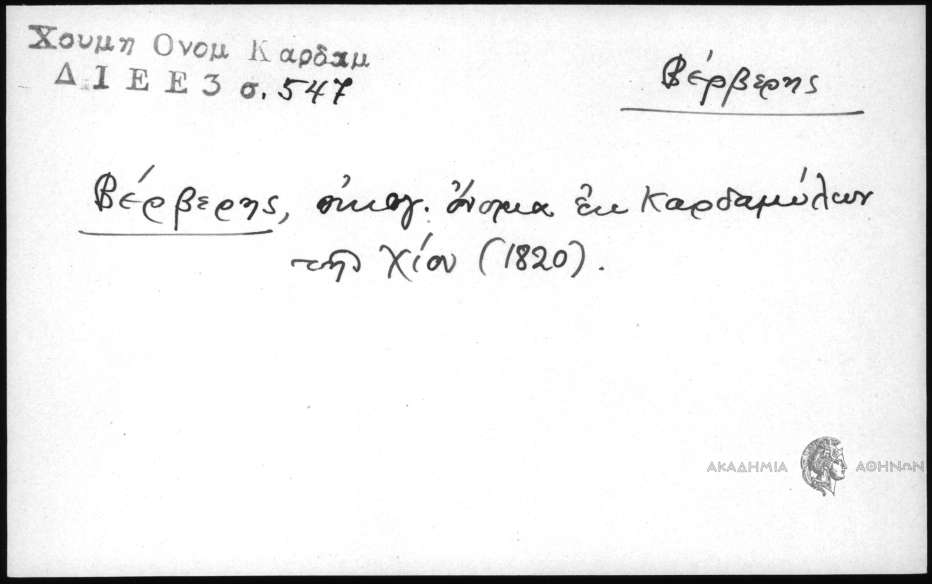 Χουμη Ονομ Καρδαμ
Δ Ι Ε Ε 3 σ. 547
Βέρβερης
Βέρβερης, οἰκογ. ὄνομα ἐκ Καρδαμύλων
τῆς Χίου (1820).
ΑΚΑΔΗΜΙΑ ΑΘΗΝΩΝ